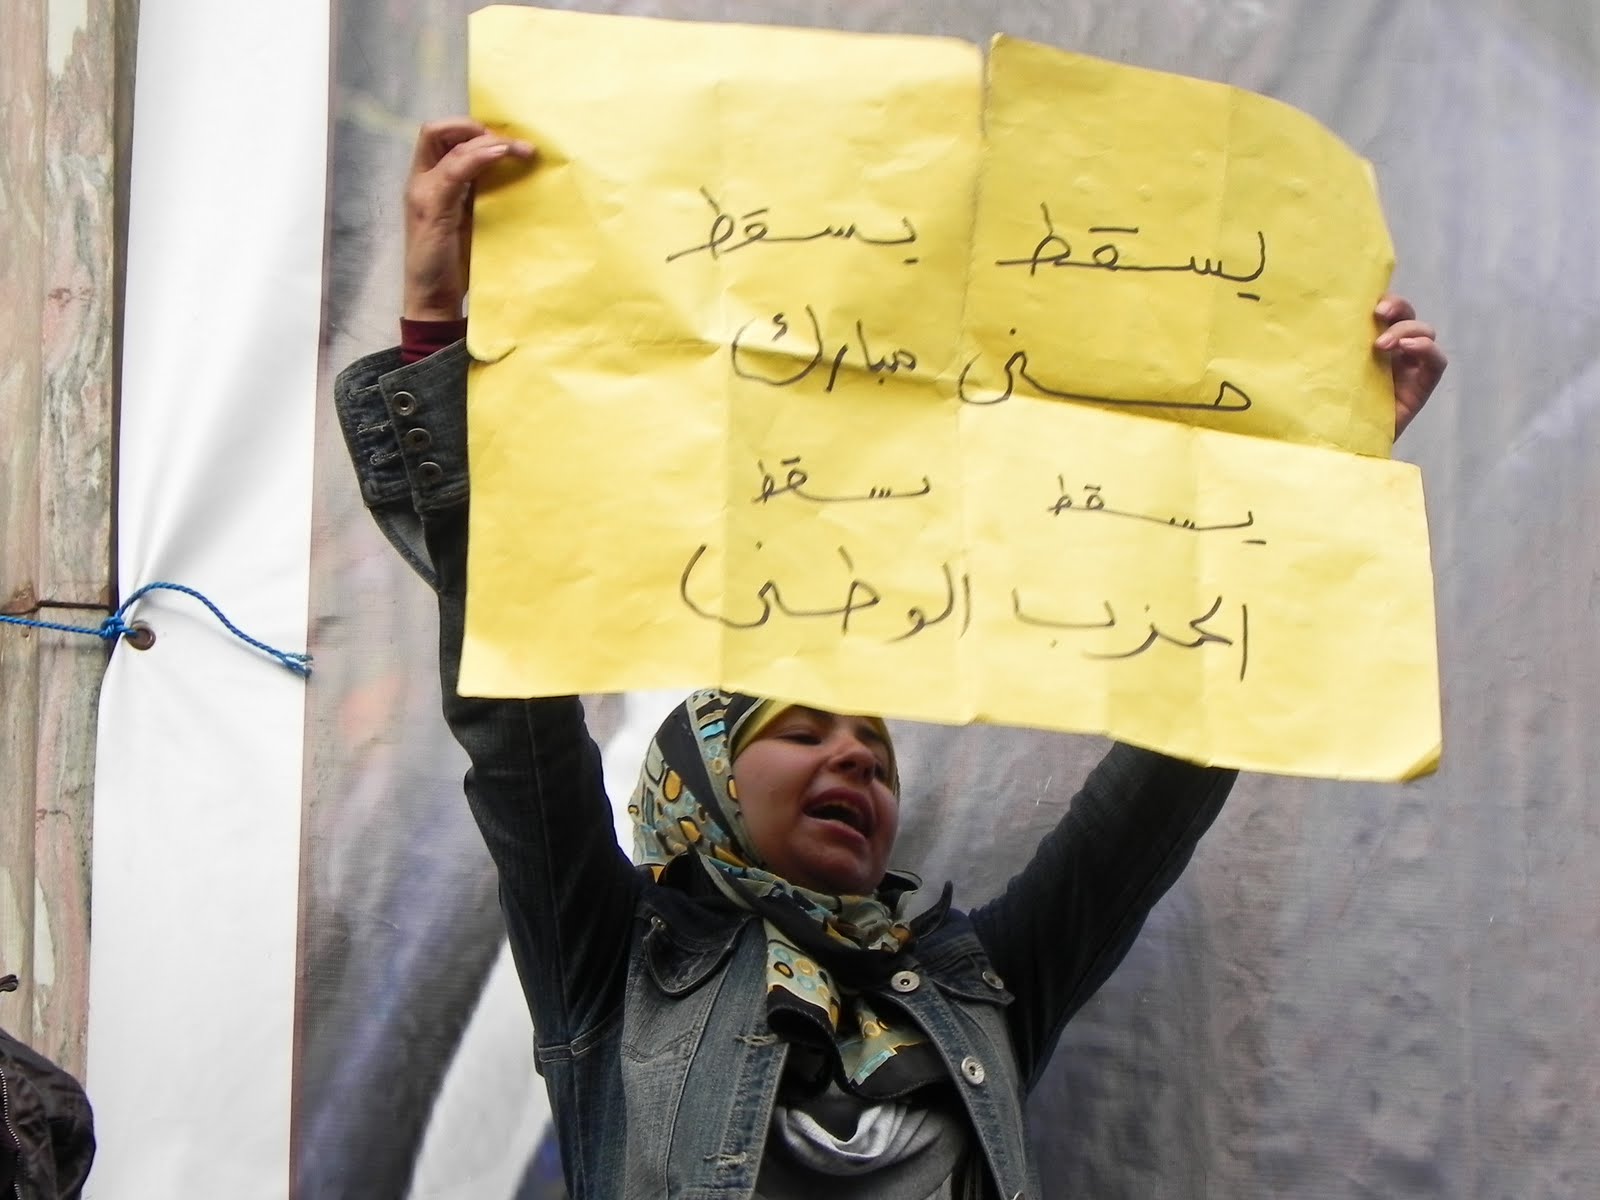 يسقط يسقط
حسنى مبارك
يسقط يسقط
الحزب الوطنى